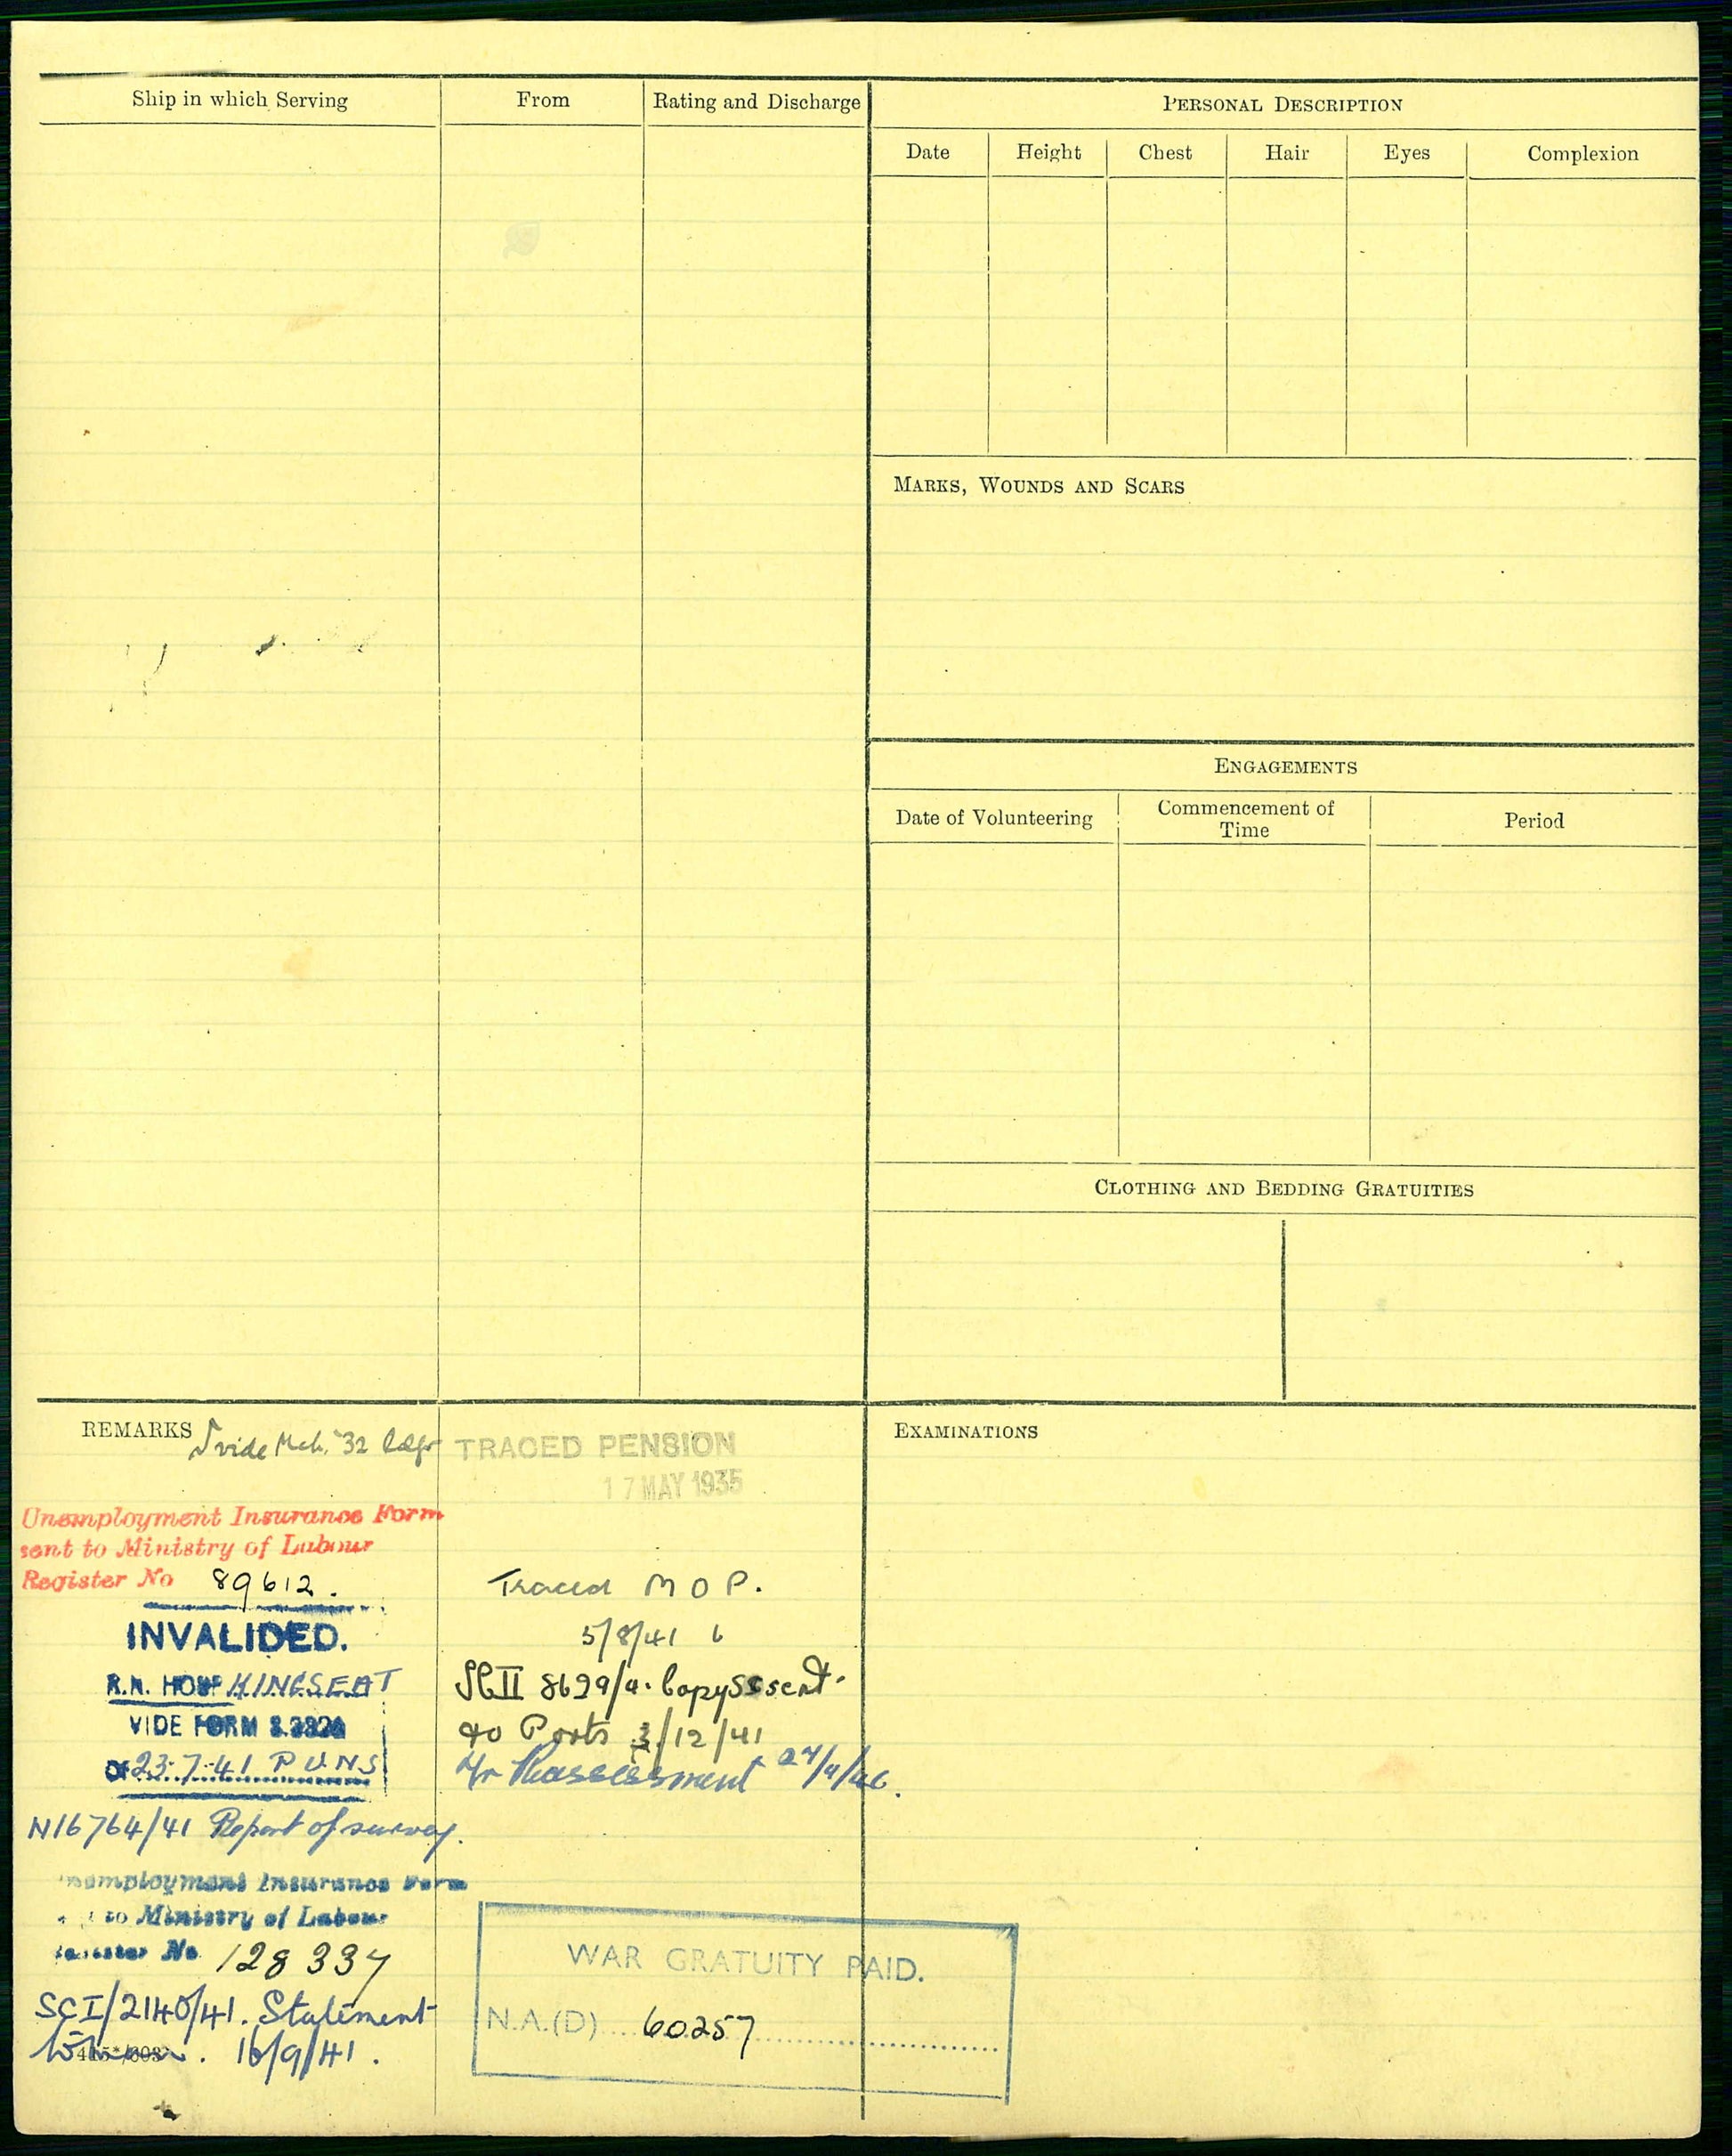 Ship in which Serving
From
Rating and Discharge
PERSONAL DESCRIPTION
Date
Height
Chest
Hair
Eyes
Complexion
MARKS, WOUNDS AND SCARS
ENGAGEMENTS
Date of Volunteering
Commencement of
Time
Period
CLOTHING AND BEDDING GRATUITIES
REMARKS
vide Mch. '32
Unemployment Insurance Form
sent to Ministry of Labour
Register No 89612.
INVALIDED.
R.N. HOSP KINGSEAT
VIDE FORM
OF 23.7.41 P U N S
N16764/41 Report of survey.
Unemployment Insurance Form
to Ministry of Labour
Register No 128337
SCI/2140/41. Statement
16/9/41.
TRACED PENSION
17 MAY 1935
Traced M O P.
5/8/41
II 8629/41. Copys sent
to Ports 3/12/41
Reassessment
WAR GRATUITY PAID.
N.A.(D) 60257
EXAMINATIONS